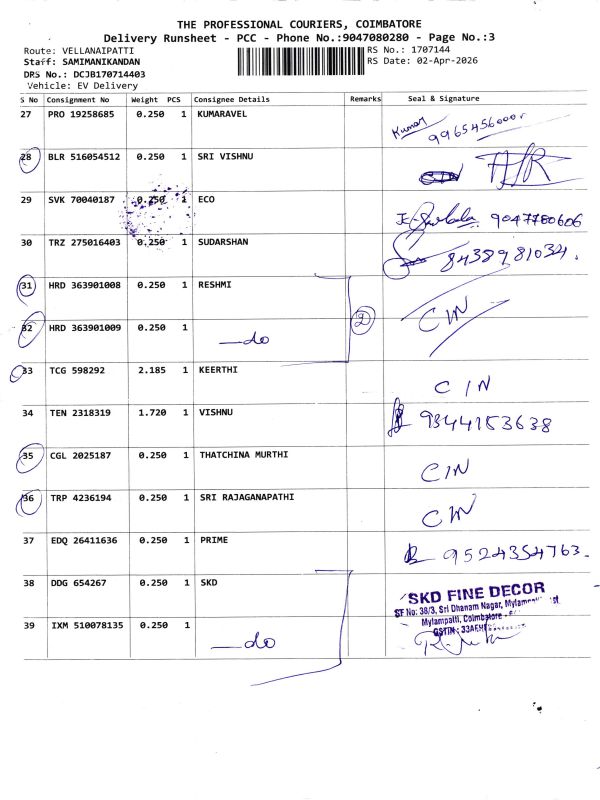 THE PROFESSIONAL COURIERS, COIMBATORE
Delivery Runsheet - PCC - Phone No.:9047080280 - Page No.:3
Route: VELLANAIPATTI RS No.: 1707144
Staff: SAMIMANIKANDAN RS Date: 02-Apr-2026
DRS No.: DCJB170714403
Vehicle: EV Delivery
S No Consignment No Weight PCS Consignee Details Remarks Seal & Signature
27 PRO 19258685 0.250 1 KUMARAVEL Kumar 9965456000
28 BLR 516054512 0.250 1 SRI VISHNU
29 SVK 70040187 0.250 1 ECO 9047780606
30 TRZ 275016403 0.250 1 SUDARSHAN 8438981034.
31 HRD 363901008 0.250 1 RESHMI CIN
32 HRD 363901009 0.250 1 do 2
33 TCG 598292 2.185 1 KEERTHI CIN
34 TEN 2318319 1.720 1 VISHNU 9344153638
35 CGL 2025187 0.250 1 THATCHINA MURTHI CIN
36 TRP 4236194 0.250 1 SRI RAJAGANAPATHI CIN
37 EDQ 26411636 0.250 1 PRIME 9524354763.
38 DDG 654267 0.250 1 SKD SKD FINE DECOR
SF No: 38/3, Sri Dhanam Nagar,
Mylampatti, Coimbatore
GSTIN: 33AEH
39 IXM 510078135 0.250 1 do